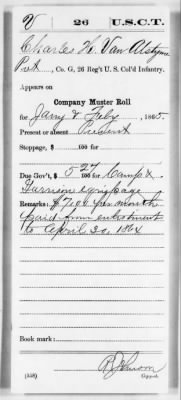 V 26 U.S.C.T.
Charles H. Van Alstyne
Pvt., Co. G, 26 Reg't U. S. Col'd Infantry.
Appears on
Company Muster Roll
for Jany & Feby, 1865.
Present or absent Present
Stoppage, $ 100 for
Due Gov't, $ 5 27 100 for Camp &
Garrison equipage
Remarks: $7.00 per month
paid from enlistment
to April 30, 1864
Book mark:
(358) Copyist.